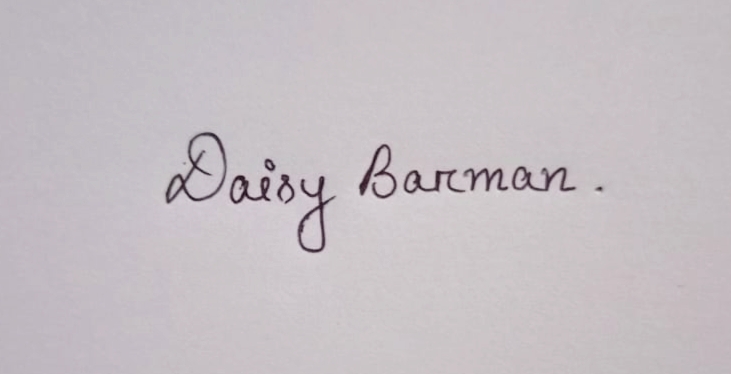 Daisy Barman.